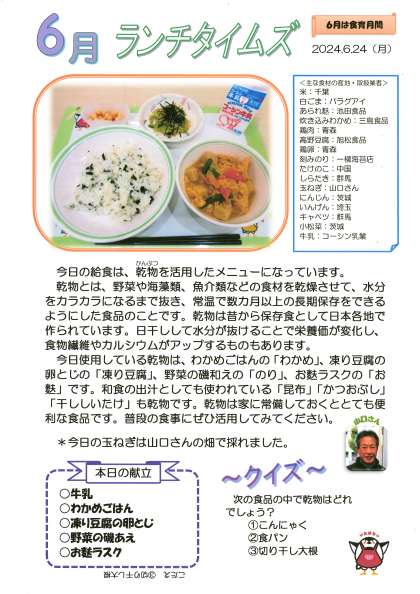 6月 ランチタイムズ
6月は食育月間
2024.6.24（月）
＜主な食材の産地・取扱業者＞
米：千葉
白ごま：パラグアイ
あられ麩：池田食品
炊き込みわかめ：三島食品
鶏肉：青森
高野豆腐：旭松食品
鶏卵：青森
刻みのり：一榎海苔店
たけのこ：中国
しらたき：群馬
玉ねぎ：山口さん
にんじん：茨城
いんげん：埼玉
キャベツ：群馬
小松菜：茨城
牛乳：コーシン乳業
今日の給食は、乾物を活用したメニューになっています。
かんぶつ
乾物とは、野菜や海藻類、魚介類などの食材を乾燥させて、水分
をカラカラになるまで抜き、常温で数カ月以上の長期保存をできる
ようにした食品のことです。乾物は昔から保存食として日本各地で
作られています。日干しして水分が抜けることで栄養価が変化し、
食物繊維やカルシウムがアップするものもあります。
今日使用している乾物は、わかめごはんの「わかめ」、凍り豆腐の
卵とじの「凍り豆腐」、野菜の磯和えの「のり」、お麩ラスクの「お
麩」です。和食の出汁としても使われている「昆布」「かつおぶし」
「干ししいたけ」も乾物です。乾物は家に常備しておくととても便
利な食品です。普段の食事にぜひ活用してみてください。
＊今日の玉ねぎは山口さんの畑で採れました。
山口さん
本日の献立
○牛乳
○わかめごはん
○凍り豆腐の卵とじ
○野菜の磯あえ
○お麩ラスク
～クイズ～
次の食品の中で乾物はどれ
でしょう？
①こんにゃく
②食パン
③切り干し大根
こたえ ③切り干し大根